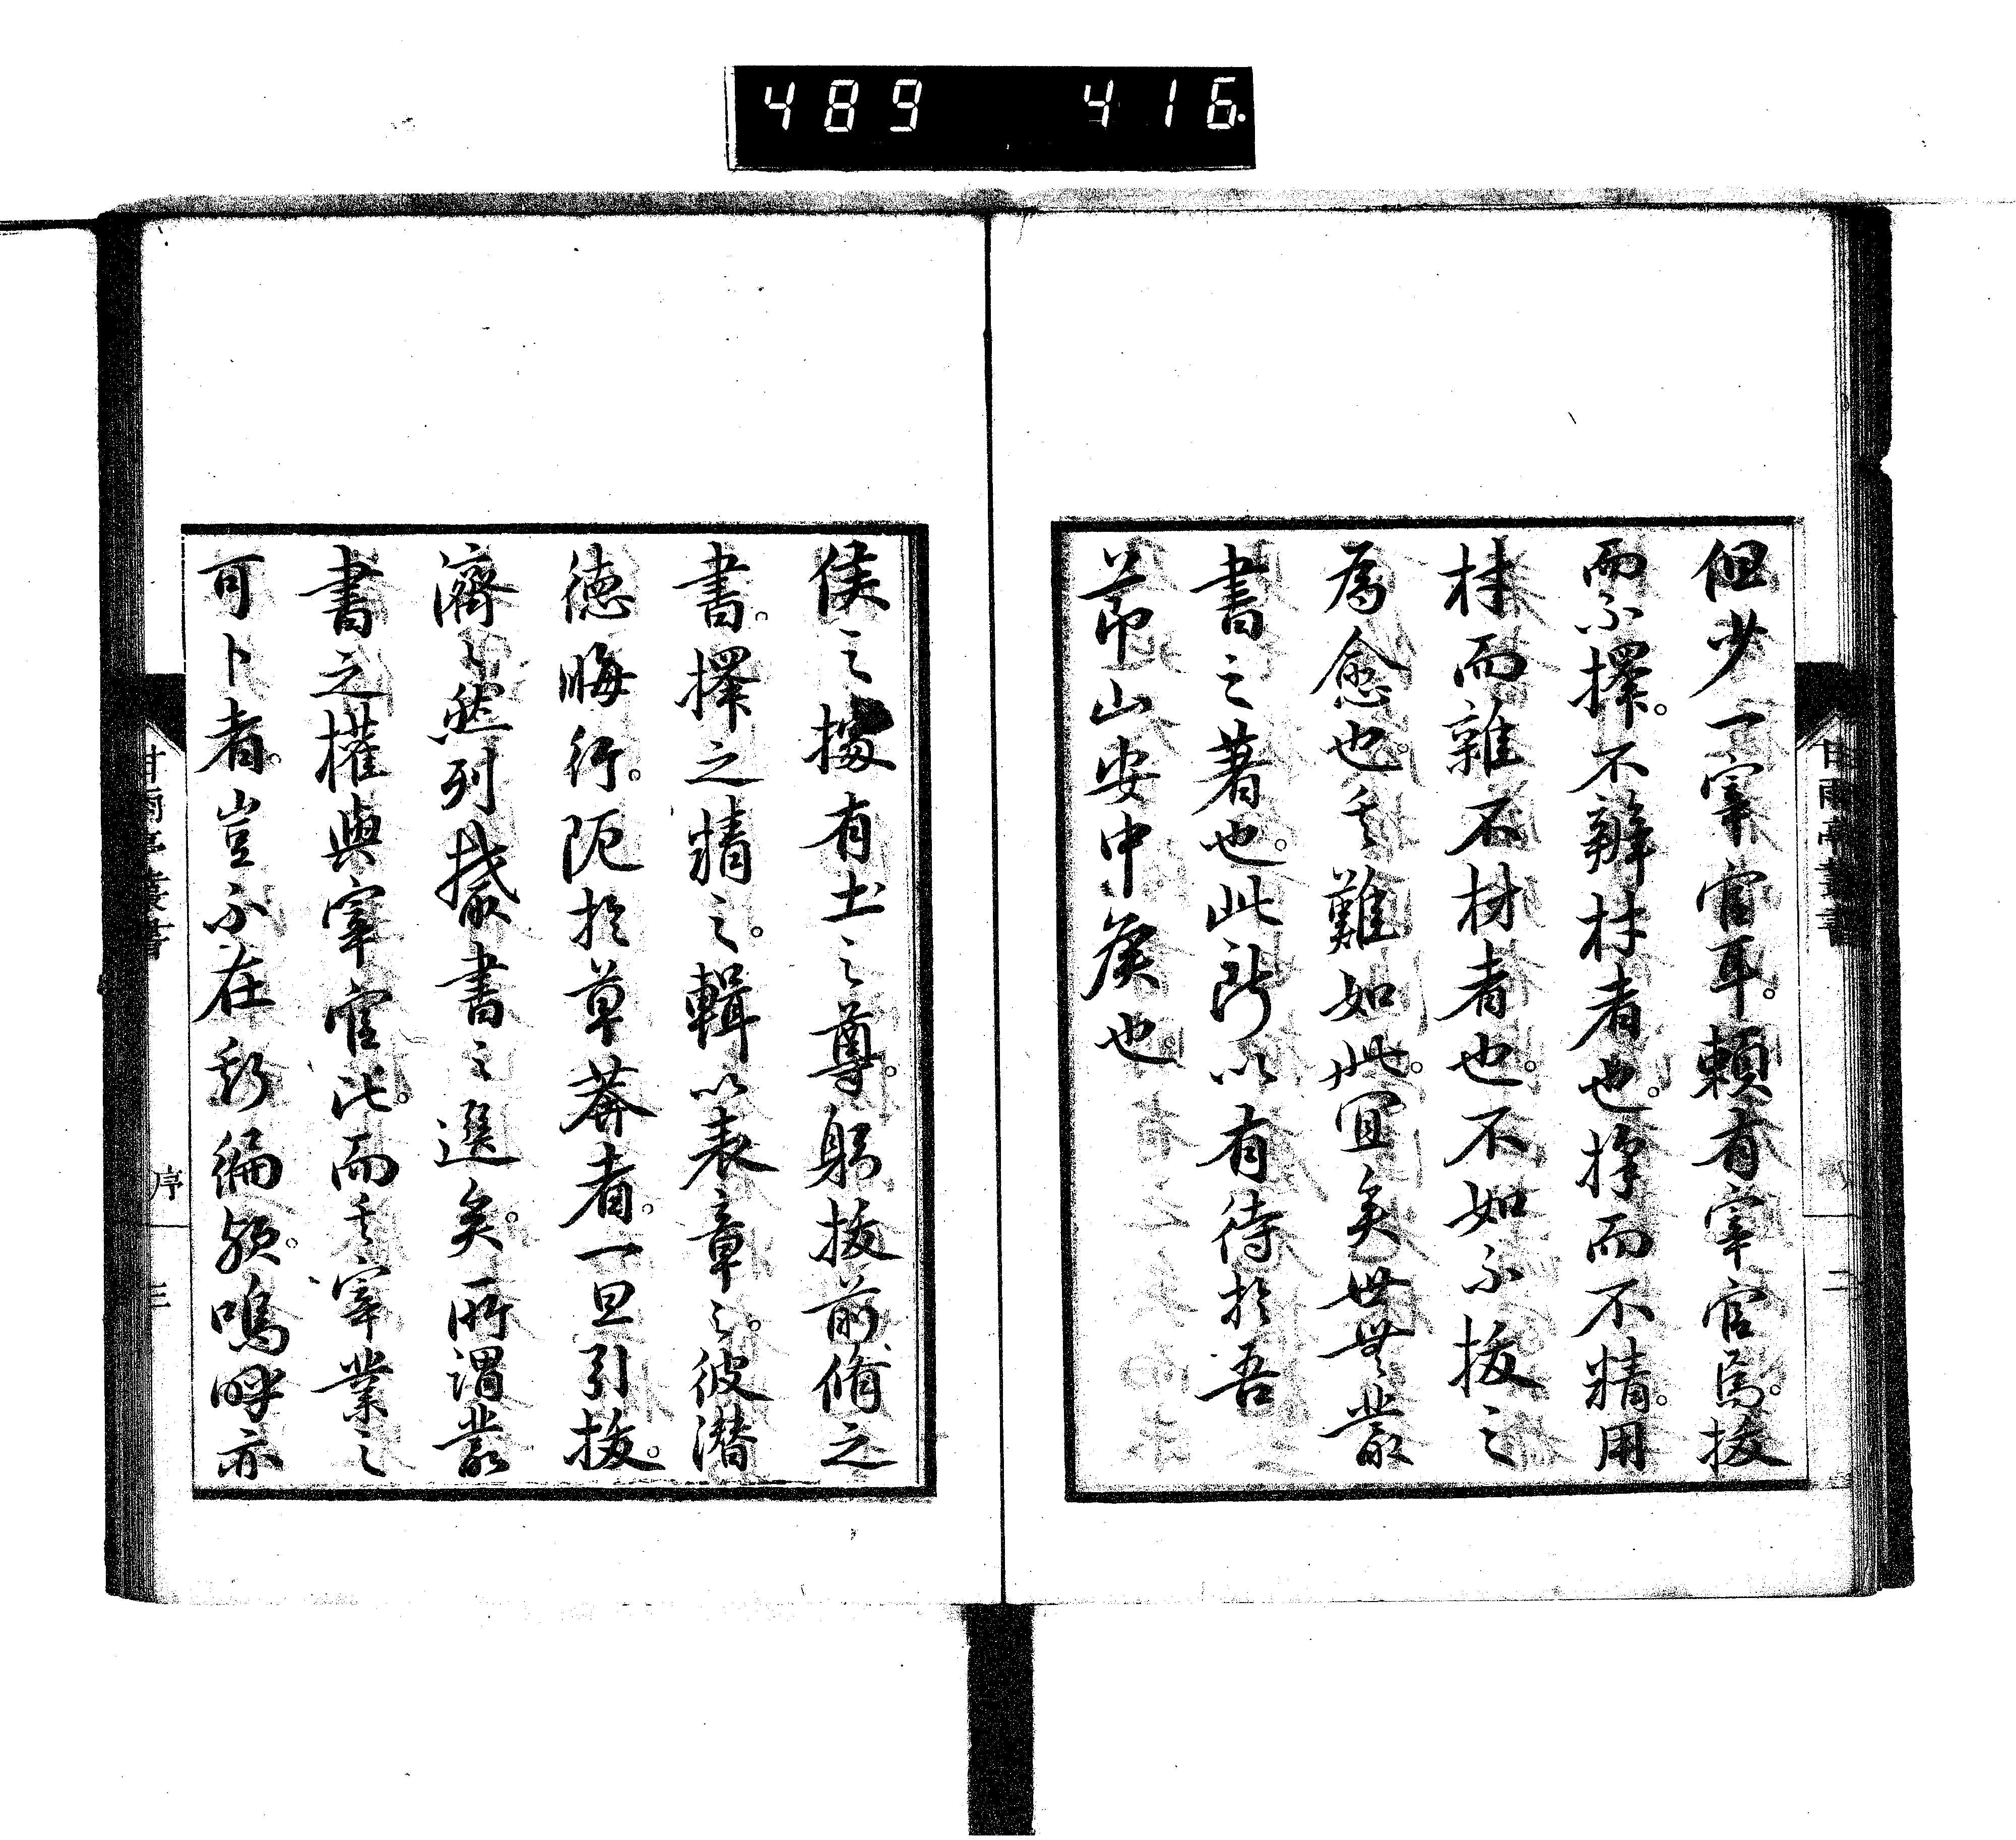 489 416
甘雨亭叢書
二
但少一宰官耳。頼有宰官焉。拔
而不擇。不辨材者也。擇而不精。用
材而雜不材者也。不如不拔之
為愈也。其難如此。宜矣世無叢
書之著也。此所以有待於吾
節山安中矦也
侯之據有土之尊。躬拔前脩之
書。擇之精之。輯以表章之。彼潜
徳晦行。阨於草莽者。一旦引拔。
濟〻然列掇書之選矣。所謂叢
書之權與宰官比。而其宰業之
可卜者。豈不在新編歟。嗚呼亦
甘雨亭叢書
序
三